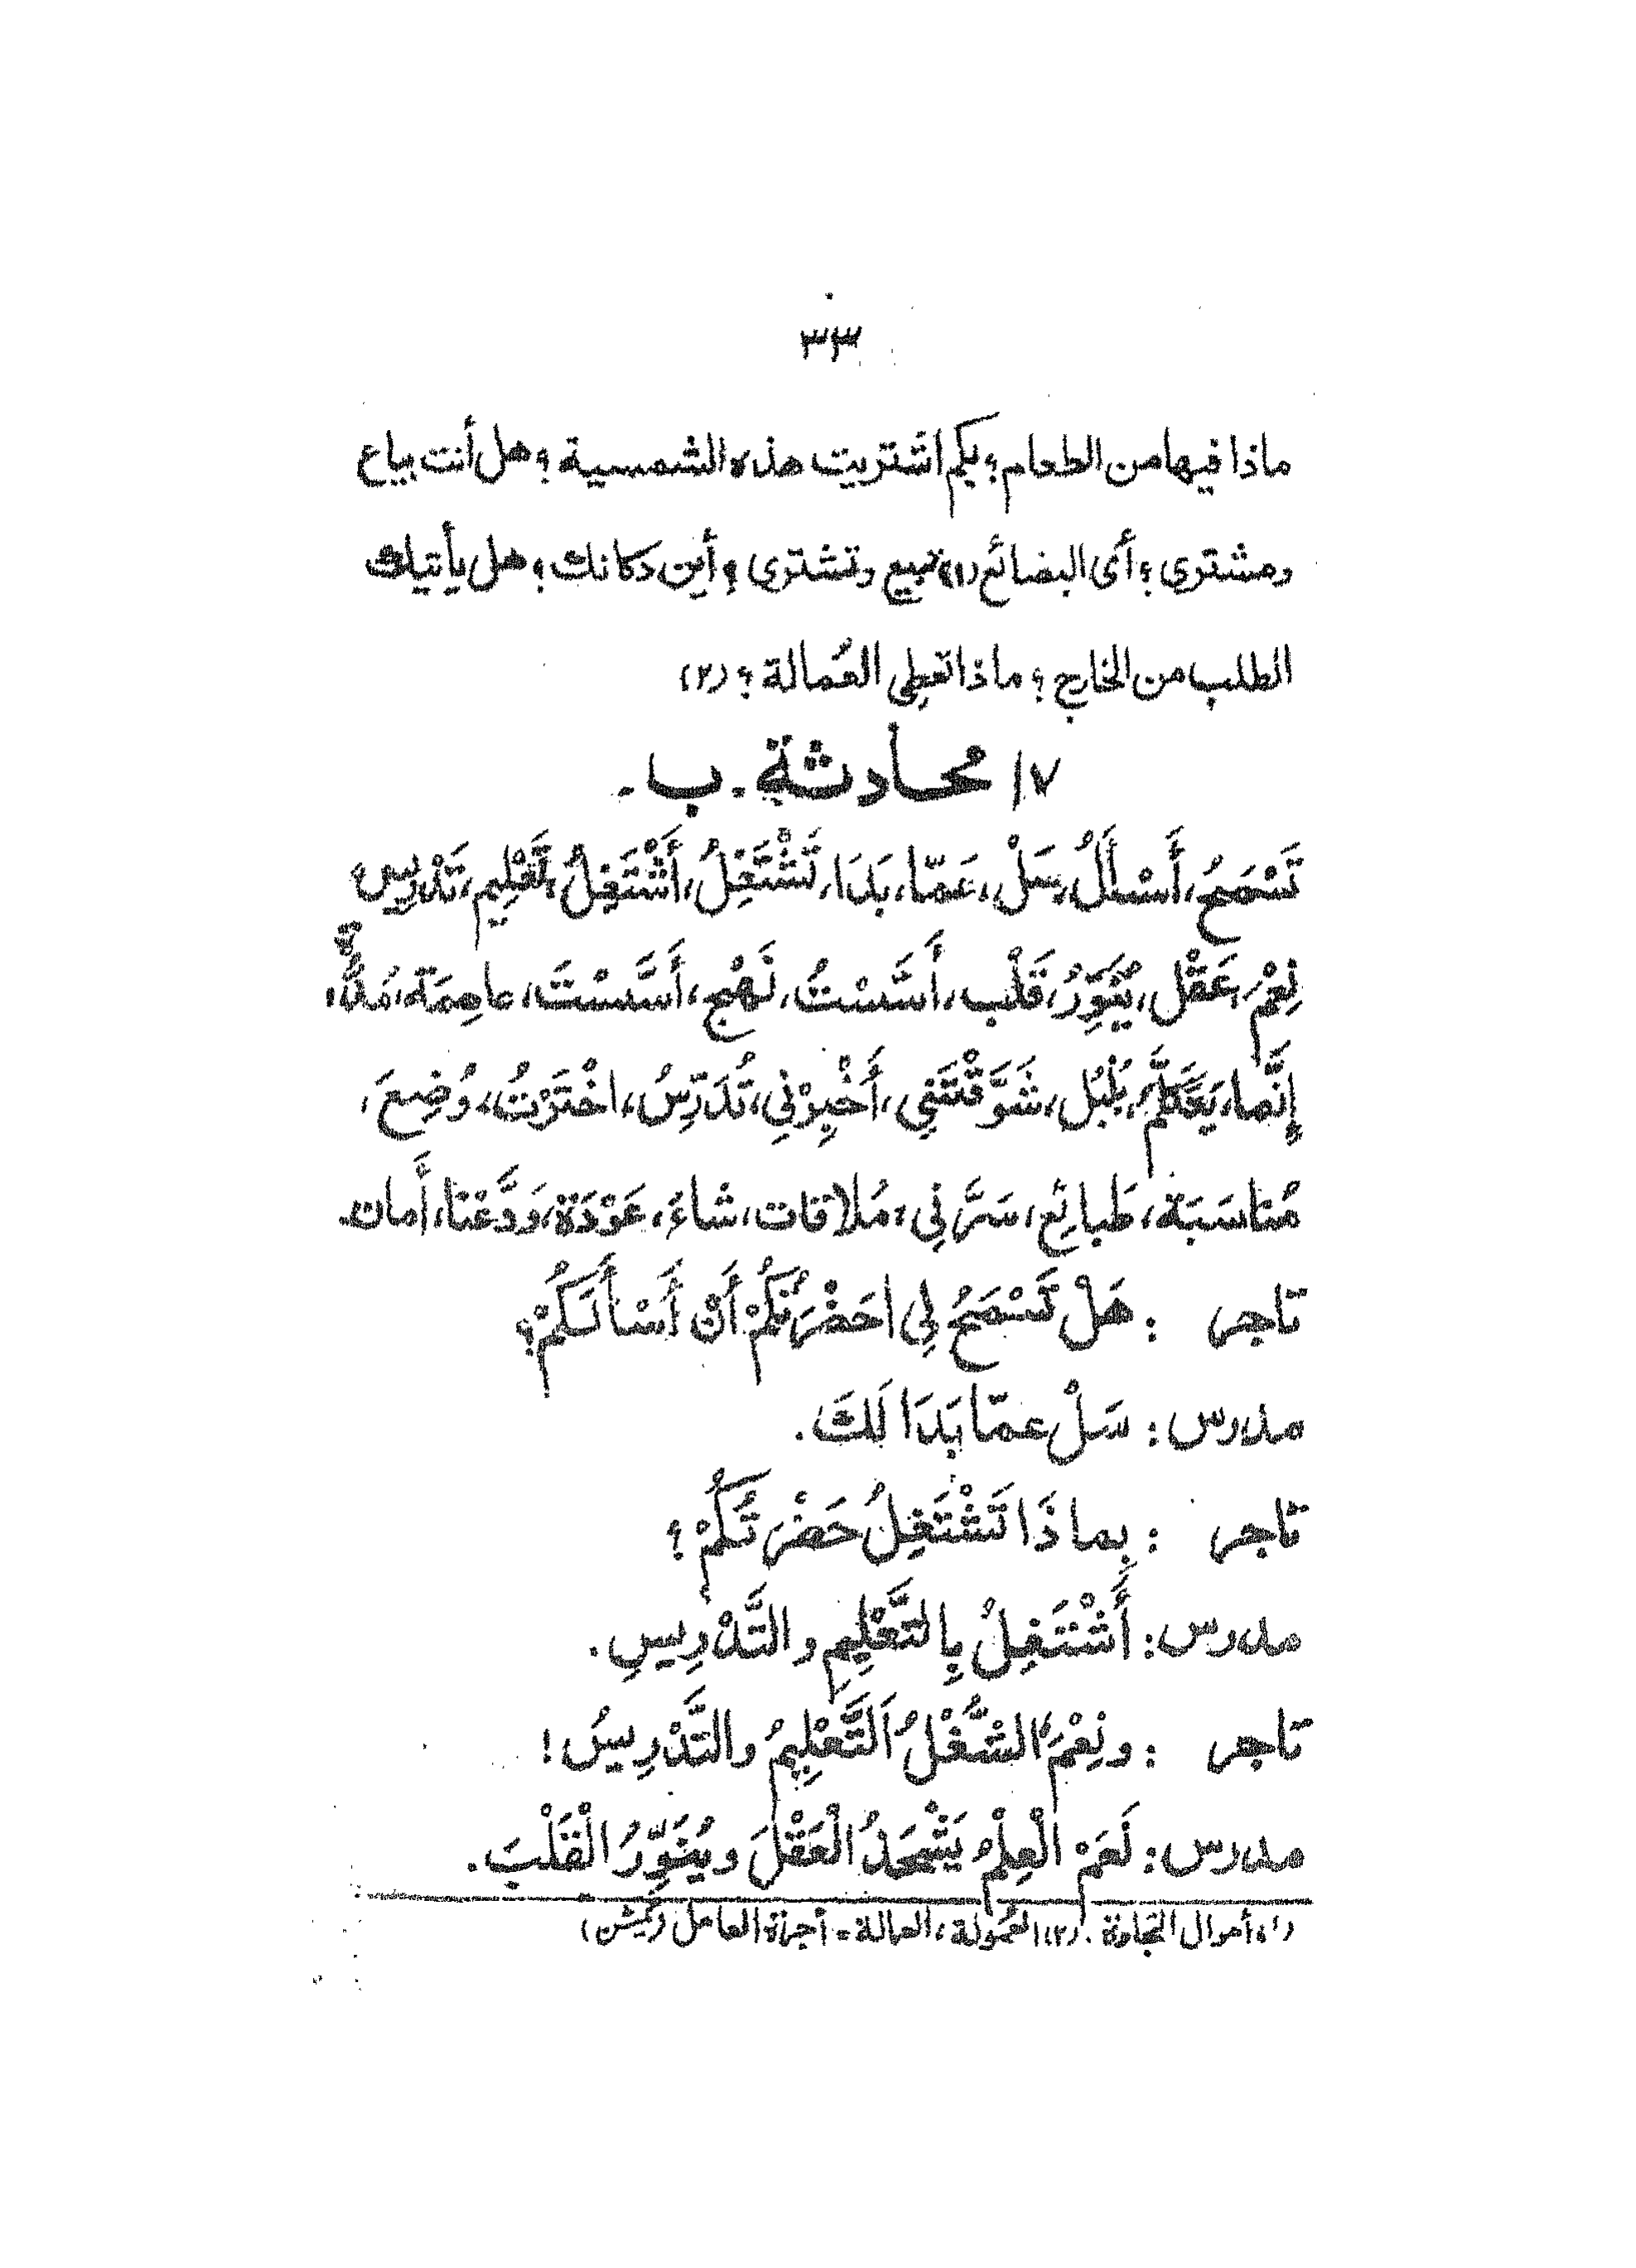 ٣٣
ماذا فيها من الطعام؟ بكم اشتريت هذه الشمسية؟ هل أنت بياع
ومشتري؟ أى البضائع (١) تبيع وتشتري؟ وأين دكانك؟ هل يأتيك
الطلب من الخارج؟ ماذا تعطِى العُمالة؟ (٢)
٧/ محادثة ـ ب ـ
تَسْمَحُ، أَسْألُ، سَلْ، عَمّا، بَدَا، تَشْتَغِلُ، أَشْتَغِلُ، تَعْلِيم، تَدْرِيس،
نِعْمَ، عَقْل، يُنَوِّرُ، قَلْب، أَسَّسْتُ، نَهْج، أَسَّسْتَ، عاصِمَة،
إِنَّما، يَتَكَلَّمُ، بُلْبُل، شَوَّقْتَنِي، أَخْبِرْنِي، تُدَرِّسُ، اخْتَرْتُ، وُضِعَ،
مُناسَبَة، طَبائِع، سَرَّنِي، مُلاقات، شاءَ، عَوْدَة، وَدَّعْنا، أَمان
تاجر : هَلْ تَسْمَحُ لِى احَضْرَتُكُمْ أَنْ أَسْأَلَكُمْ؟
مدرس : سَلْ عمّا بَدَا لَكَ.
تاجر : بِماذَا تَشْتَغِلُ حَضْرَتُكُمْ؟
مدرس : أَشْتَغِلُ بِالتَّعْلِيمِ والتَّدْرِيسِ.
تاجر : ونِعْمَ الشُّغْلُ اَلتَّعْلِيمُ والتَّدْرِيسُ!
مدرس : نَعَمْ الْعِلْمُ يَشْحَدُ الْعَقْلَ ويُنَوِّرُ الْقَلْبَ.
(١) أموال التجارة. (٢) العُمولة، العمالة = أجرة العامل (كميشن)